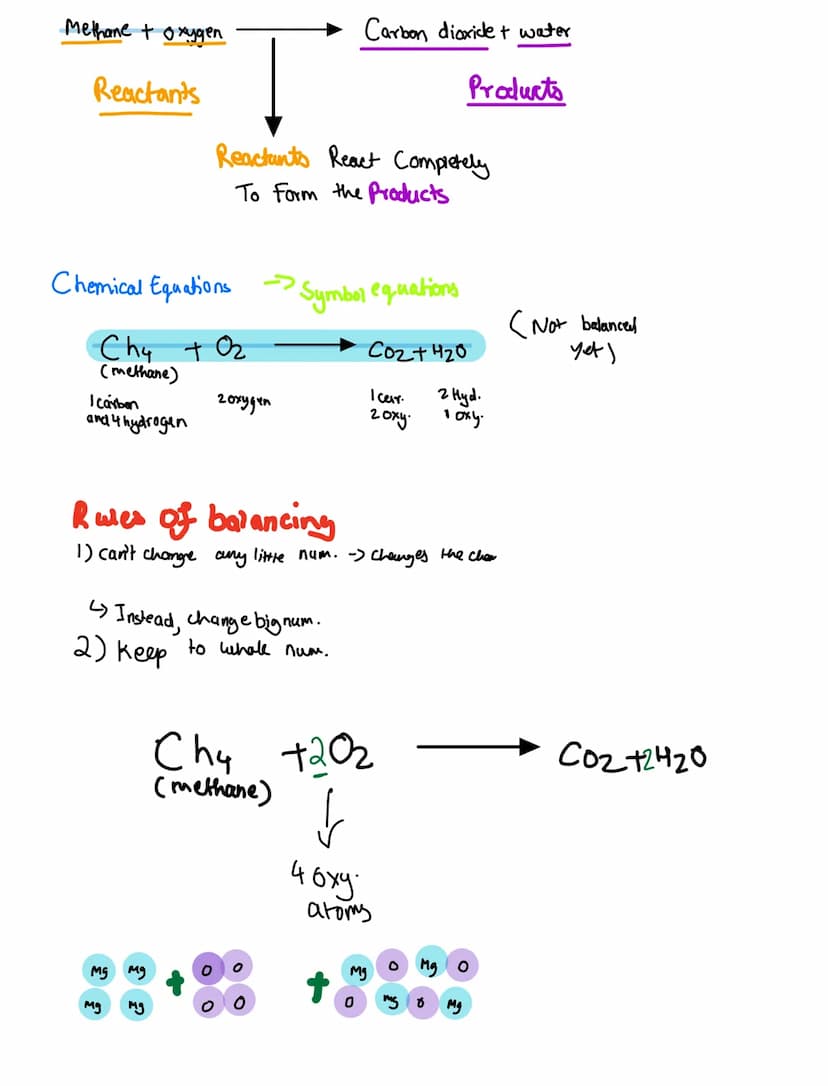 Methane + oxygen Carbon dioxide + water
Reactants Products
Reactants React Completely
To Form the Products
Chemical Equations -> Symbol equations
(Not balanced
yet)
Ch4 + O2 CO2+H2O
(methane)
1 carbon 2 oxygen 1 car. 2 Hyd.
and 4 hydrogen 2 oxy. 1 oxy.
Rules of balancing
1) can't change any little num. -> changes the
↳ Instead, change big num.
2) Keep to whole num.
Ch4 +2O2 CO2+2H2O
(methane)
4 oxy.
atoms
Mg Mg + O O + Mg O Mg O
Mg Mg O O O Mg O Mg